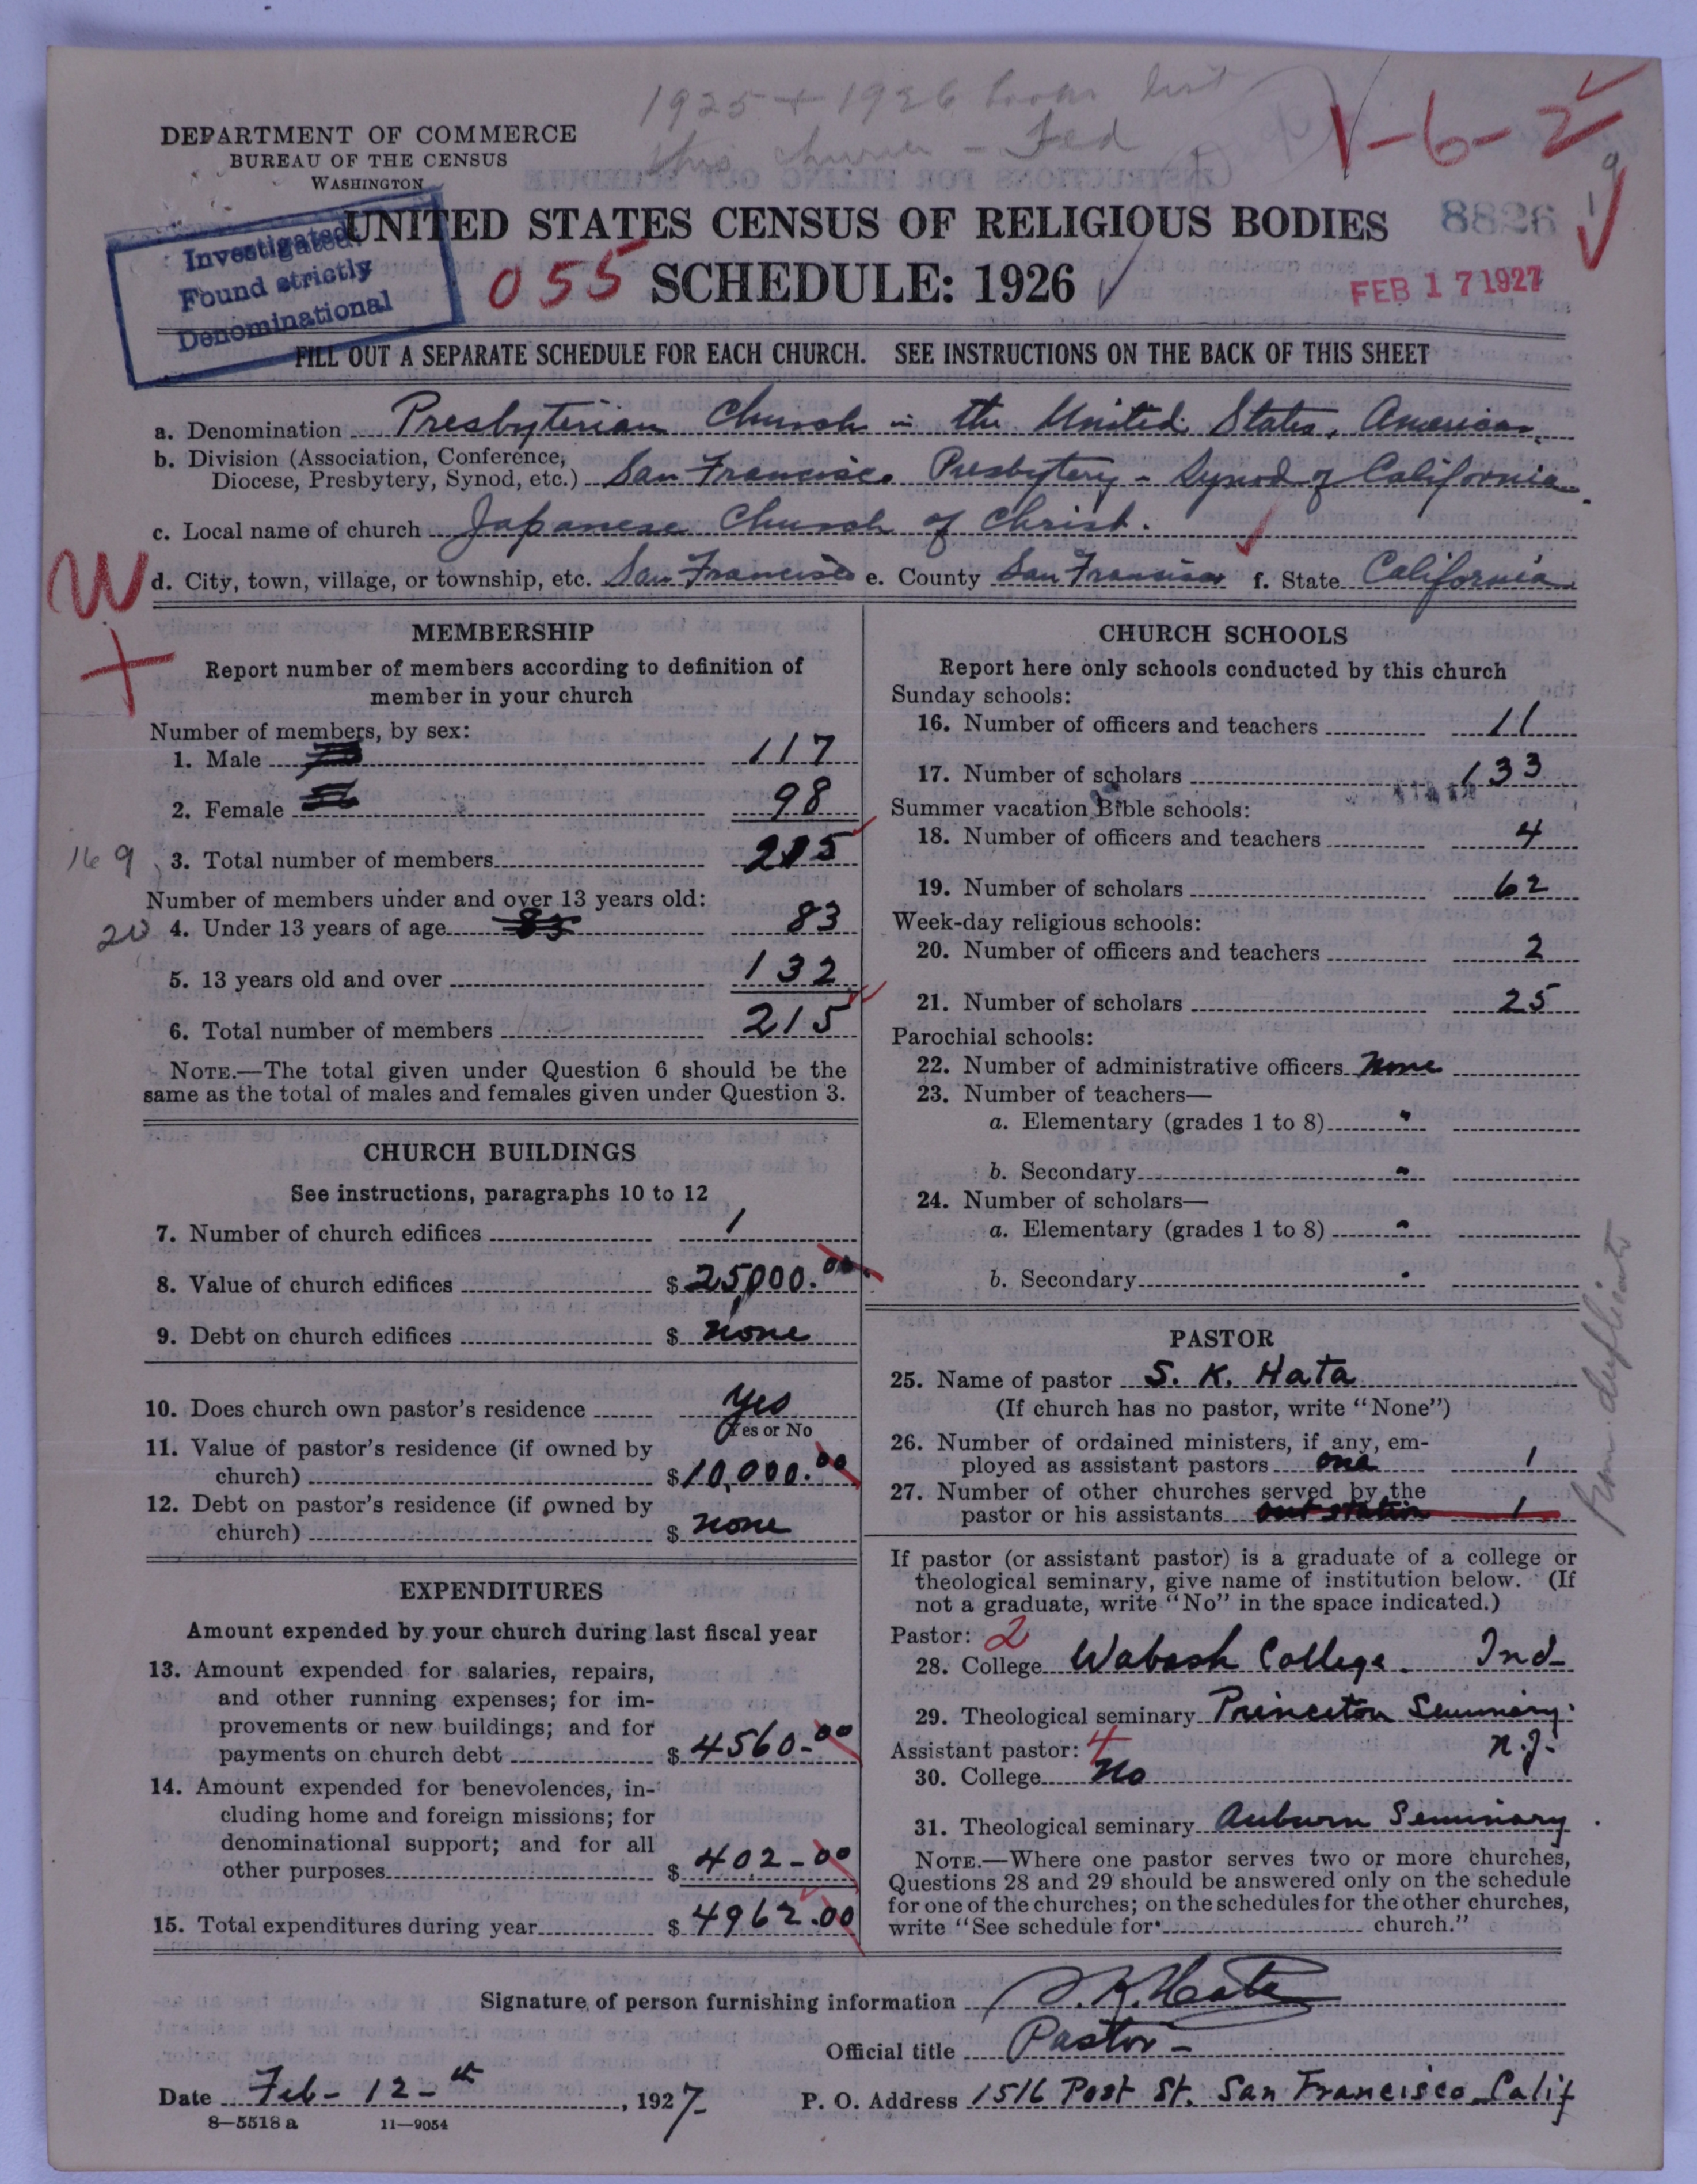 1925 + 1926 books list
this church - Fed
1-6-2
DEPARTMENT OF COMMERCE
BUREAU OF THE CENSUS
WASHINGTON
Investigated
Found strictly
Denominational
UNITED STATES CENSUS OF RELIGIOUS BODIES
8826
055 SCHEDULE: 1926
FEB 17 1927
FILL OUT A SEPARATE SCHEDULE FOR EACH CHURCH. SEE INSTRUCTIONS ON THE BACK OF THIS SHEET
a. Denomination Presbyterian Church in the United States, American
b. Division (Association, Conference,
Diocese, Presbytery, Synod, etc.) San Francisco Presbytery - Synod of California
c. Local name of church Japanese Church of Christ.
W d. City, town, village, or township, etc. San Francisco e. County San Francisco f. State California
MEMBERSHIP
Report number of members according to definition of
member in your church
Number of members, by sex:
1. Male 117
2. Female 98
169 3. Total number of members 215
Number of members under and over 13 years old:
20 4. Under 13 years of age 83 83
5. 13 years old and over 132
6. Total number of members 215
NOTE.—The total given under Question 6 should be the
same as the total of males and females given under Question 3.
CHURCH BUILDINGS
See instructions, paragraphs 10 to 12
7. Number of church edifices 1
8. Value of church edifices $ 25,000.00
9. Debt on church edifices $ none
10. Does church own pastor's residence Yes
Yes or No
11. Value of pastor's residence (if owned by
church) $ 10,000.00
12. Debt on pastor's residence (if owned by
church) $ none
EXPENDITURES
Amount expended by your church during last fiscal year
13. Amount expended for salaries, repairs,
and other running expenses; for im-
provements or new buildings; and for
payments on church debt $ 4560-00
14. Amount expended for benevolences, in-
cluding home and foreign missions; for
denominational support; and for all
other purposes $ 402-00
15. Total expenditures during year $ 4962.00
CHURCH SCHOOLS
Report here only schools conducted by this church
Sunday schools:
16. Number of officers and teachers 11
17. Number of scholars 133
Summer vacation Bible schools:
18. Number of officers and teachers 4
19. Number of scholars 62
Week-day religious schools:
20. Number of officers and teachers 2
21. Number of scholars 25
Parochial schools:
22. Number of administrative officers None
23. Number of teachers—
a. Elementary (grades 1 to 8) "
b. Secondary "
24. Number of scholars—
a. Elementary (grades 1 to 8) "
b. Secondary "
PASTOR
25. Name of pastor S. K. Hata
(If church has no pastor, write "None")
26. Number of ordained ministers, if any, em-
ployed as assistant pastors one 1
27. Number of other churches served by the
pastor or his assistants out station 1
from duplicate
If pastor (or assistant pastor) is a graduate of a college or
theological seminary, give name of institution below. (If
not a graduate, write "No" in the space indicated.)
Pastor: 2
28. College Wabash College. Ind-
29. Theological seminary Princeton Seminary
N.J.
Assistant pastor: 4
30. College No
31. Theological seminary Auburn Seminary
NOTE.—Where one pastor serves two or more churches,
Questions 28 and 29 should be answered only on the schedule
for one of the churches; on the schedules for the other churches,
write "See schedule for church."
Signature of person furnishing information S. K. Hata
Official title Pastor-
Date Feb- 12-th, 1927 P. O. Address 1516 Post St. San Francisco Calif
8-5518 a 11-9054